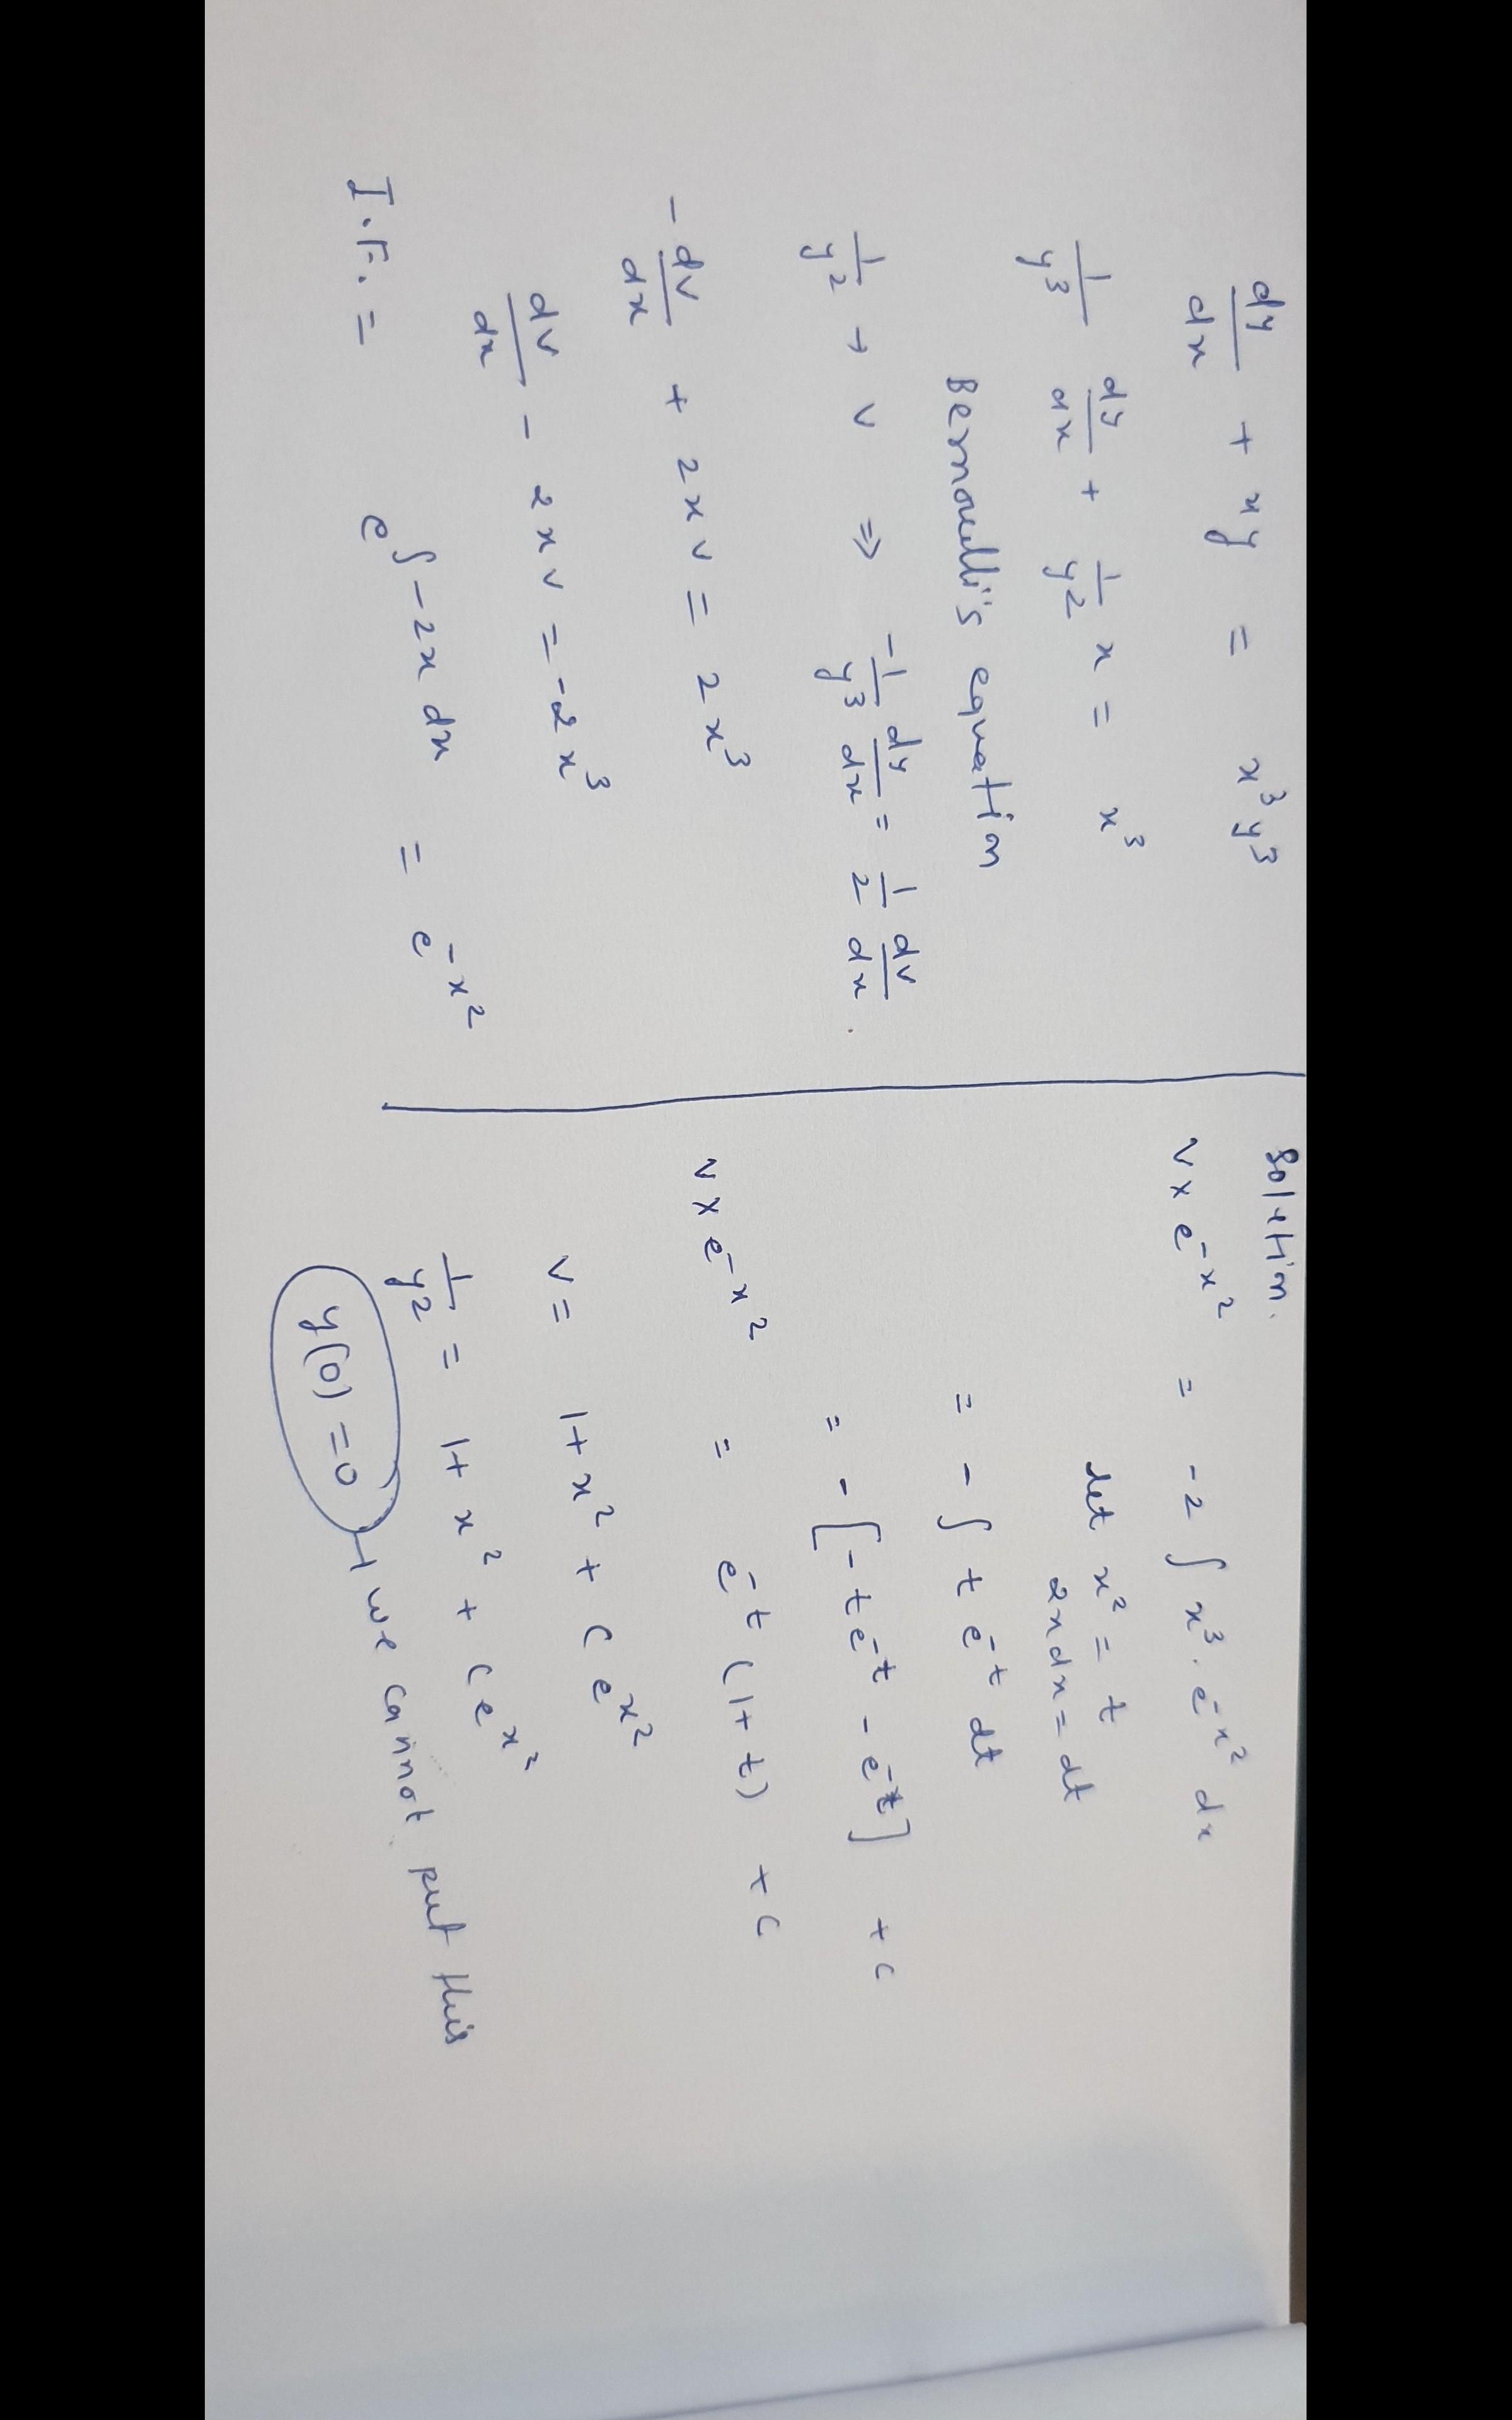 dy/dx + xy = x³y³
1/y³ dy/dx + 1/y² x = x³
Bernoulli's equation
1/y² → v ⇒ -1/y³ dy/dx = 1/2 dv/dx.
-dv/dx + 2xv = 2x³
dv/dx - 2xv = -2x³
I.F. = e^∫-2x dx = e^-x²
Solution.
v x e^-x² = -2 ∫ x³. e^-x² dx
let x² = t
2x dx = dt
= - ∫ t e^-t dt
= - [-t e^-t - e^-t] + c
v x e^-x² = e^-t (1+t) + c
v = 1 + x² + c e^x²
1/y² = 1 + x² + c e^x²
y(0) = 0 → we cannot put this